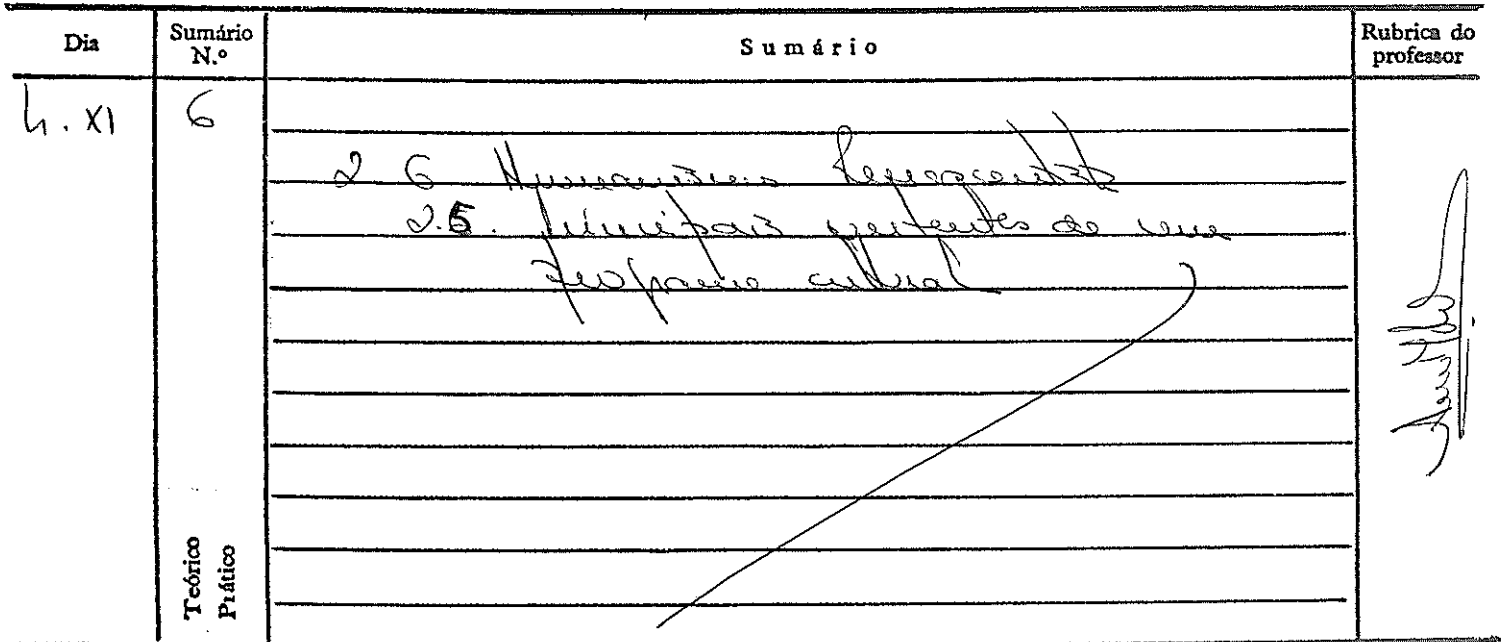 Dia
Sumário N.º
Sumário
Rubrica do professor
4. XI
6
2 6 Humanismo Renascentista
2.5. Principais vertentes de um
programa cultural
Teórico
Prático